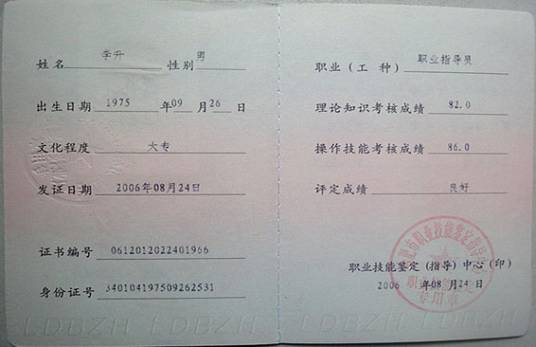 姓名 李升 性别 男
出生日期 1975 年09 月26 日
文化程度 大专
发证日期 2006年08月24日
证书编号 0612012022401966
身份证号 340104197509262531
职业(工 种) 职业指导员
理论知识考核成绩 82.0
操作技能考核成绩 86.0
评定成绩 良好
职业技能鉴定(指导)中心(印)
2006 年08 月24 日
专用章
LDBZH LDBZH LDBZH